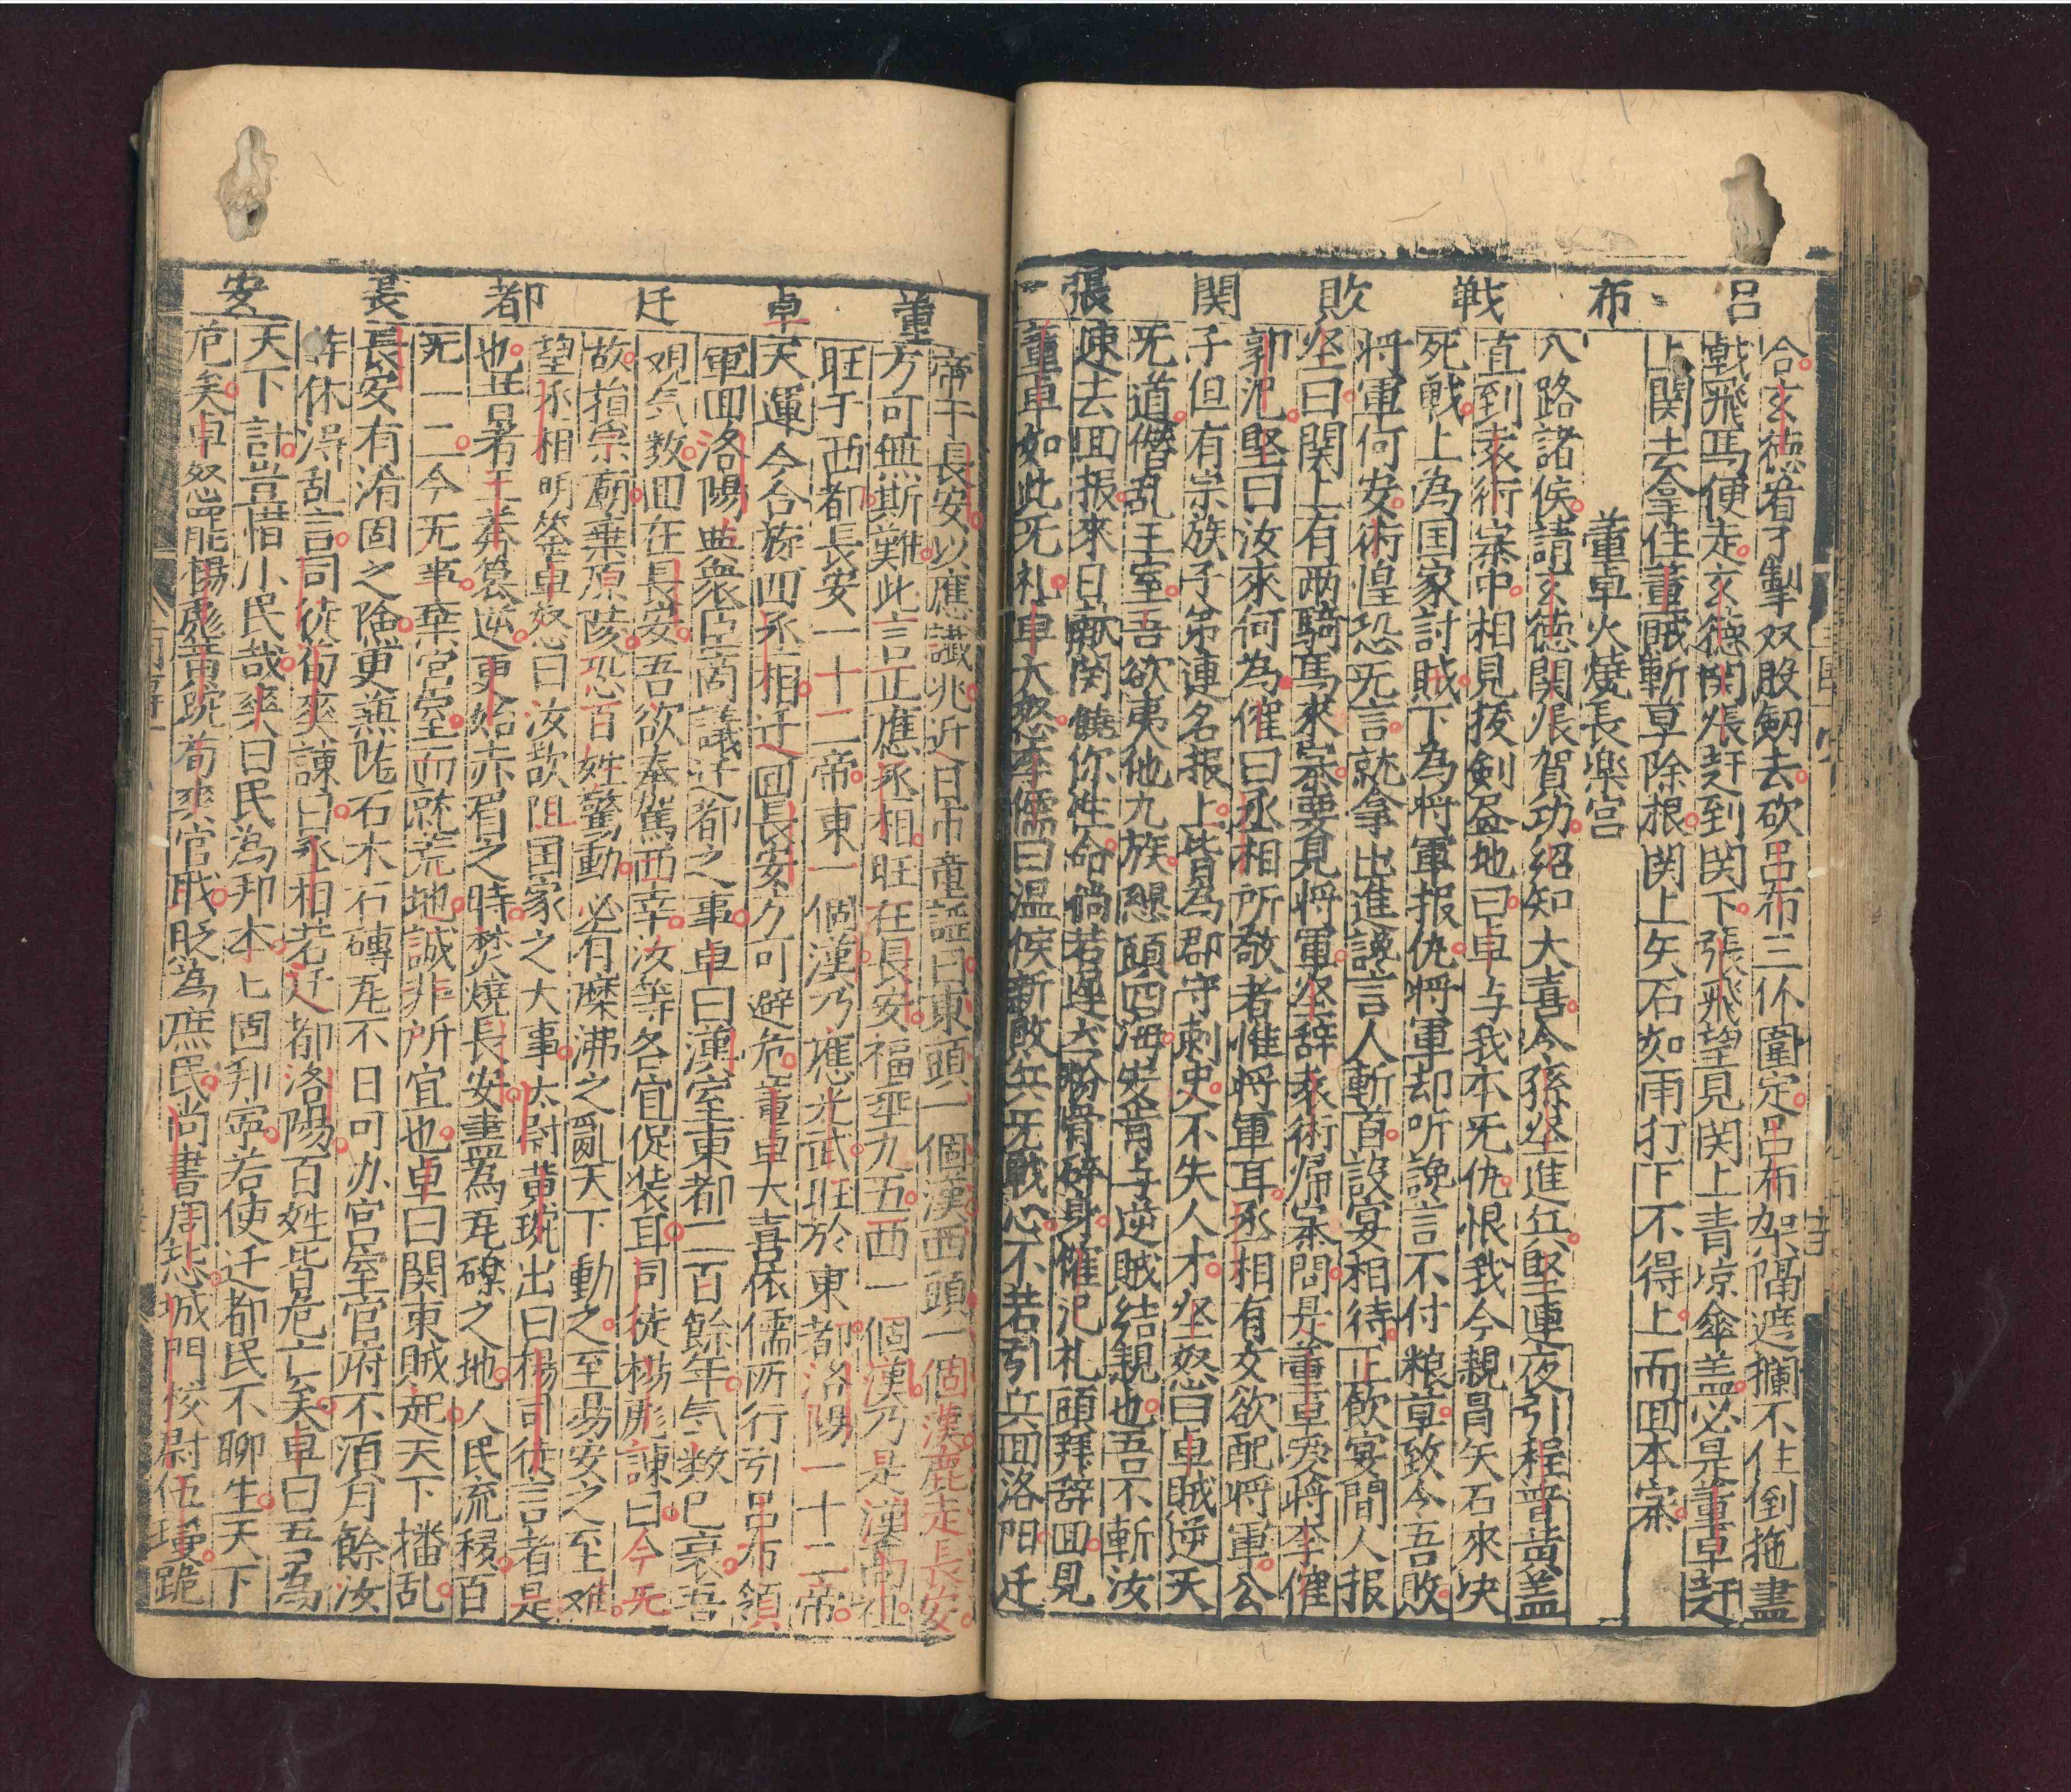 呂布戰敗関張
合玄德看了掣双股劔去砍呂布三个圍定呂布架隔遮攔不住倒拖畫
戟飛馬便走玄德関張赶到関下張飛望見関上青凉傘盖必是董卓赶
上関去拿住董賊斬草除根関上矢石如雨打下不得上而回本寨
董卓火燒長楽宮
八路諸侯請玄德関張賀功紹知大喜令孫坚進兵堅連夜引程普黄盖
直到袁術寨中相見拔剣畫地曰卓与我本无仇恨我今親冒矢石來决
死戦上為国家討賊下為將軍报仇將軍却听讒言不付粮草致令吾敗
將軍何安術惶恐无言就拿出進讒言人斬首設宴相待正飲宴間人报
坚曰関上有两騎馬來寨要見將軍坚辞袁術㱕寨問是董卓爱將李傕
郭氾堅曰汝來何為傕曰丞相所敬者惟將軍耳丞相有女欲配將軍公
子但有宗族子弟連名报上皆為郡守刺史不失人才坚怒曰卓賊逆天
无道僭乱王室吾欲夷他九族懸頭四海安肯与逆賊結親也吾不斬汝
速去回报來日献関饒你性命倘若遲悮粉骨碎身傕氾札頭拜辞回見
董卓如此无礼卓大怒李儒曰溫候新敗兵无戰心不若引兵回洛阳迁
董卓迁都長安
帝于長安以應讖兆近日市童謡曰東頭一個漢西頭一個漢鹿走長安
方可無斯難此言正應丞相旺在長安福垂九五西一個漢乃是漢高祖
旺于西都長安一十二帝東一個漢乃應光武旺於東都洛陽一十二帝
天運今合旋回丞相迁回長安方可避危董卓大喜依儒所行引呂布領
軍回洛陽與衆臣商議迁都之事卓曰漢室東都二百餘年气数已衰吾
观气数回在長安吾欲奉駕西幸汝等各宜促装耳司徒楊彪諫曰今无
故捐宗廟棄原陵恐百姓驚動必有糜沸之亂天下動之至易安之至难
望丞相明鉴卓怒曰汝敢阻国家之大事太尉黄琬出曰楊司徒言者是
也昔日者王莽篡逆更始赤眉之時焚燒長安盡為瓦礫之地人民流移百
无一二今无事棄宮室而就荒地誠非所宜也卓曰関東賊起天下播乱
長安有淆固之險更兼陇石木石磚瓦不日可办宮室官府不須月餘汝
等休得乱言司徒荀爽諫曰丞相若迁都洛陽百姓皆危亡矣卓曰吾為
天下計豈惜小民哉爽曰民為邦本本固邦寧若使迁都民不聊生天下
危矣卓怒罷楊彪黄琬荀爽官职贬為庶民尚書周毖城門校尉伍瓊跪